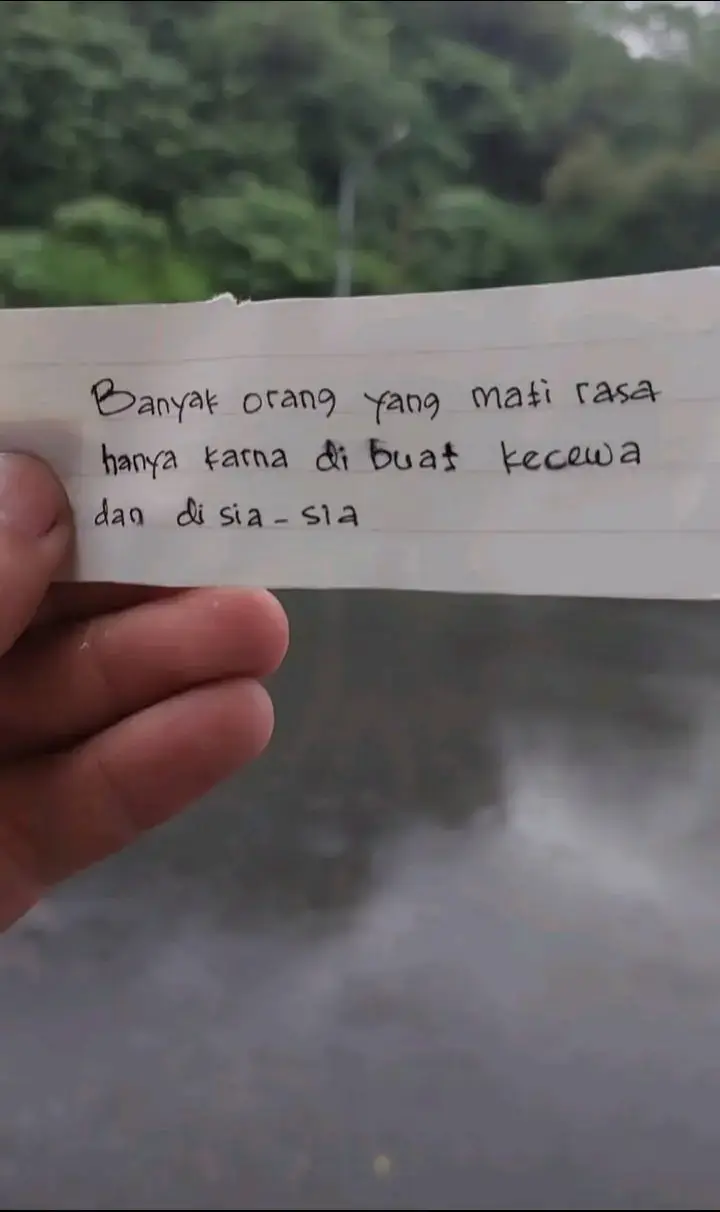 Banyak orang yang mati rasa
hanya karna di buat kecewa
dan di sia - sia